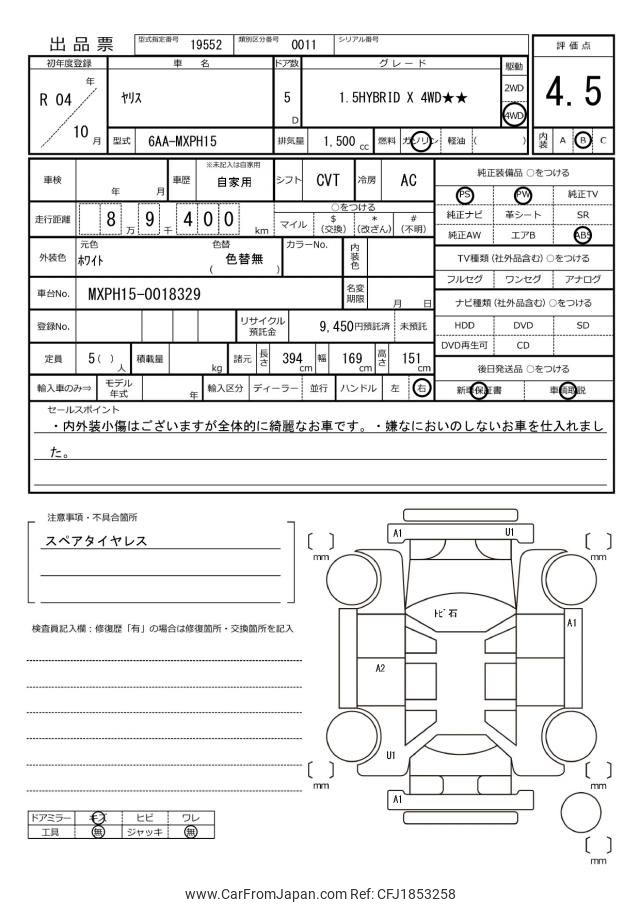 出品票 型式指定番号 19552 類別区分番号 0011 シリアル番号
評価点
4.5
内装 A B C
初年度登録 車 名 ドア数 グレード 駆動
R 04 年 10 月
ヤリス
5 D
1.5HYBRID X 4WD★★
2WD
4WD
型式 6AA-MXPH15 排気量 1,500 cc 燃料 ガソリン 軽油 ( )
車検 年 月 車歴 ※未記入は自家用 自家用 シフト CVT 冷房 AC
走行距離 8 万 9 千 4 0 0 km
○をつける
マイル $ (交換) * (改ざん) # (不明)
外装色 元色 ホワイト 色替 ( 色替無 ) カラーNo. 内装色
車台No. MXPH15-0018329 名変期限 月 日
登録No. リサイクル預託金 9,450円預託済 未預託
定員 5( ) 人 積載量 kg 諸元 長さ 394 cm 幅 169 cm 高さ 151 cm
輸入車のみ⇒ モデル年式 年 輸入区分 ディーラー 並行 ハンドル 左 右
純正装備品 ○をつける
PS PW 純正TV
純正ナビ 革シート SR
純正AW エアB ABS
TV種類 (社外品含む) ○をつける
フルセグ ワンセグ アナログ
ナビ種類 (社外品含む) ○をつける
HDD DVD SD
DVD再生可 CD
後日発送品 ○をつける
新車保証書 車輌取説
セールスポイント
・内外装小傷はございますが全体的に綺麗なお車です。・嫌なにおいのしないお車を仕入れまし
た。
注意事項・不具合箇所
スペアタイヤレス
検査員記入欄：修復歴「有」の場合は修復箇所・交換箇所を記入
ドアミラー キズ ヒビ ワレ
工具 無 ジャッキ 無
A1 U1
mm mm
トビ石
A1
A2
U1
mm mm
A1
mm
www.CarFromJapan.com Ref: CFJ1853258